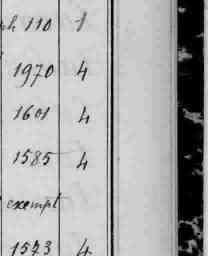 110 1
1970 4
1601 4
1585 4
exempt
1573 4